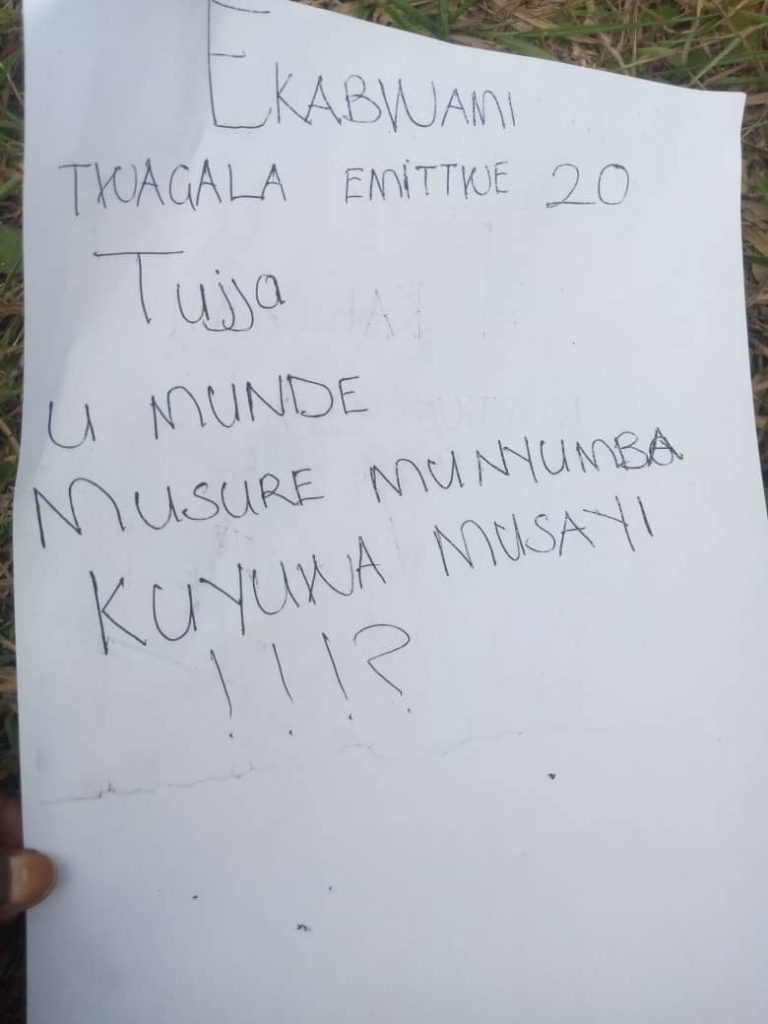 EKABWAMI
TWAGALA EMITTWE 20
Tujja
U MUNDE
MUSURE MUNYUMBA
KUYUWA MUSAYI
!!!?